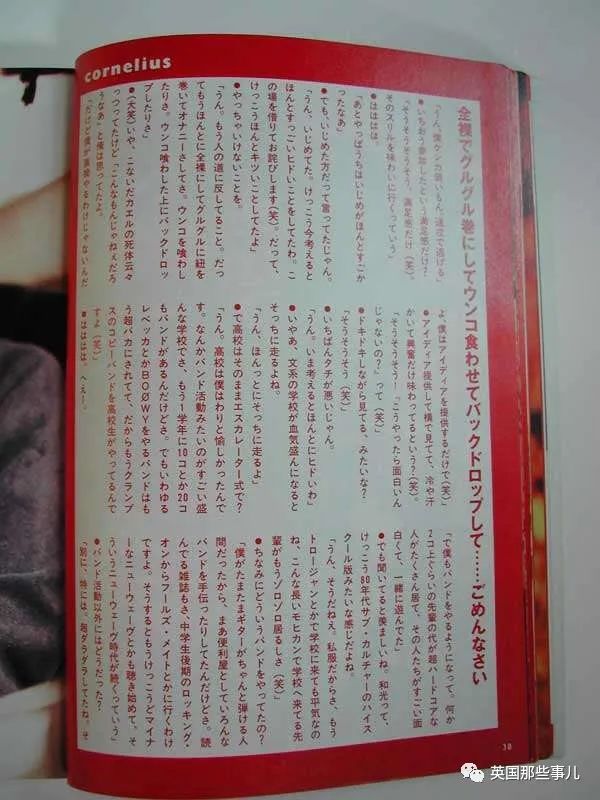 cornelius
全裸でグルグル巻にしてウンコ食わせてバックドロップして……ごめんなさい
「うん。僕ケンカ弱いもん。速攻で逃げる」
●いちおう参加したという満足感だけ？
「そうそうそうそう。満足感だけ（笑）。
そのスリルを味わいに行くっていう」
●はははは。
「あとやっぱうちはいじめがほんとすごか
ったなあ」
●でも、いじめた方だって言ってたじゃん。
「うん。いじめてた。けっこう今考えると
ほんとすっごいヒドいことをしてたわ。こ
の場を借りてお詫びします（笑）。だって、
けっこうほんとキツいことしてたよ」
●やっちゃいけないことを。
「うん。もう人の道に反してること。だっ
てもうほんとに全裸にしてグルグルに紐を
巻いてオナニーさしてさ。ウンコを喰わし
たりさ。ウンコ喰わした上にバックドロッ
プしたりさ」
●（大笑）いや、こないだカエルの死体云々
っつってたけど、「こんなもんじゃねぇだろ
うなあ」と俺は思ってたよ。
「だけど僕が直接やるわけじゃないんだ
よ、僕はアイディアを提供するだけで（笑）」
●アイディア提供して横で見てて、冷や汗
かいて興奮だけ味わってるという？（笑）。
「そうそうそう！『こうやったら面白いん
じゃないの？』って（笑）」
●ドキドキしながら見てる、みたいな？
「そうそうそう（笑）」
●いちばんタチが悪いじゃん。
「うん。いま考えるとほんとにヒドいわ」
●いやあ、文系の学校が血気盛んになると
そっちに走るよね。
「うん、ほんっとにそっちに走るよ」
●で高校はそのままエスカレーター式で？
「うん。高校は僕はわりと愉しかったんで
す。なんかバンド活動みたいのがすごい盛
んな学校でさ、もう1学年に10コとか20コ
もバンドがあるんだけどさ。でもいわゆる
レベッカとかBOØWYをやるバンドはも
う超バカにされてて、だからもうクランプ
スのコピーバンドを高校生がやってるんで
すよ（笑）」
●はははは、へぇー。
「で僕もバンドをやるようになって。何か
2コ上ぐらいの先輩の代が超ハードコアな
人がたくさん居て、その人たちがすごい面
白くて、一緒に遊んでた」
●でも聞いてると羨ましいね。和光って、
けっこう80年代サブ・カルチャーのハイス
クール版みたいな感じだよね。
「うん、そうだねえ。私服だからさ、もう
トロージャンとかで学校に来ても平気なの
ね、こんな長いモヒカンで学校へ来てる先
輩がもうゾロゾロ居るしさ（笑）」
●ちなみにどういうバンドをやってたの？
「僕がたまたまギターがちゃんと弾ける人
間だったから、まあ便利屋としていろんな
バンドを手伝ったりしてたんだけどさ。読
んでる雑誌もさ、中学生後期のロッキング・
オンからフールズ・メイトとかに行くわけ
ですよ。そうするともうけっこうどマイナ
ーなニューウェーヴとかも聴き始めて、そ
ういうニューウェーヴ時代が続くっていう」
●バンド活動以外にはどうだった？
「別に、特には。超ダラダラしてたね。そ
30
英国那些事儿